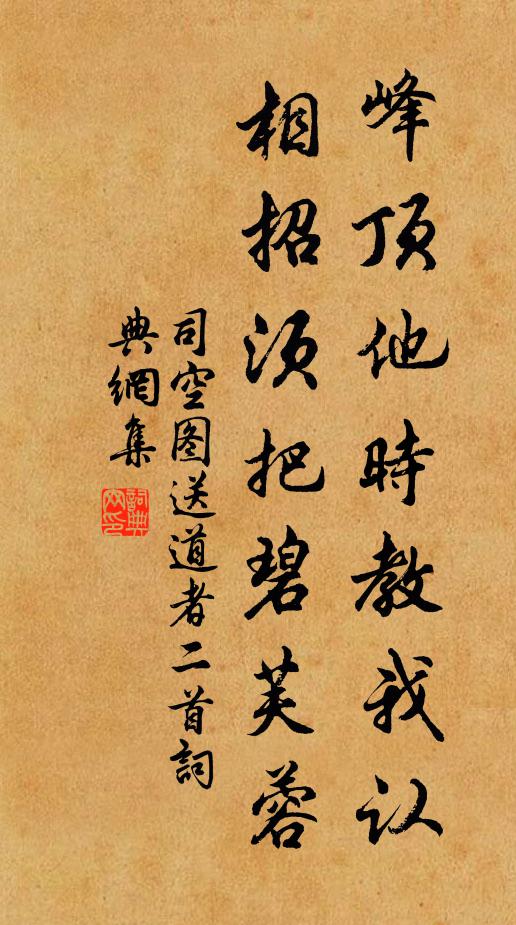 峰顶他時教我认
相招须把碧芙蓉
司空图送道者二首詞
典網集
詞典网印